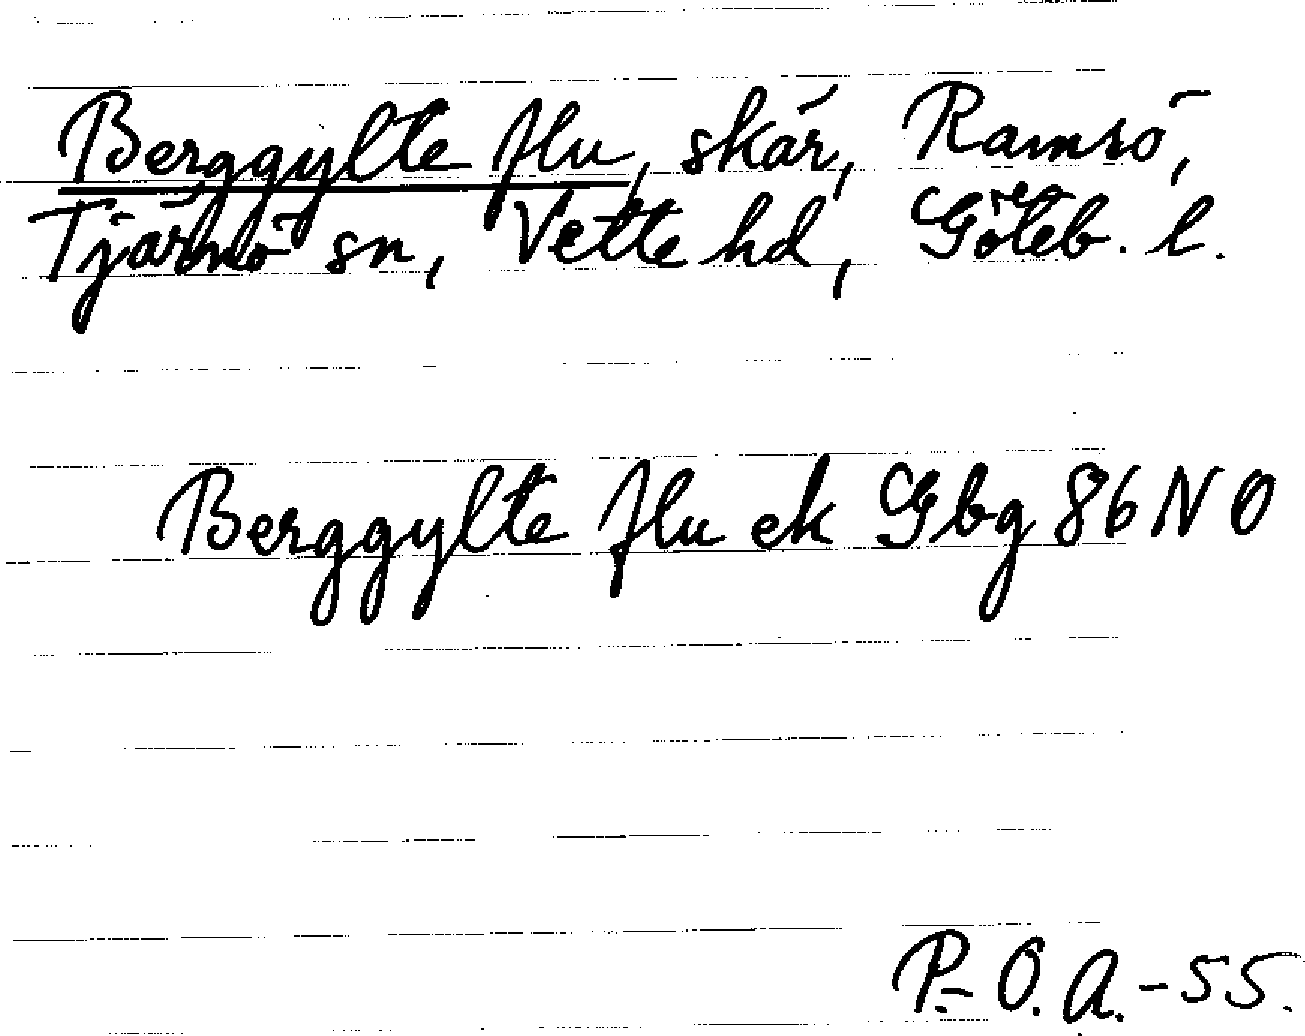 Berggylte flu, skär, Ramsö,
Tjärnö sn, Vette hd, Göteb. l.
Berggylte flu ek Gbg 86 NO
P.-O. A. -55.